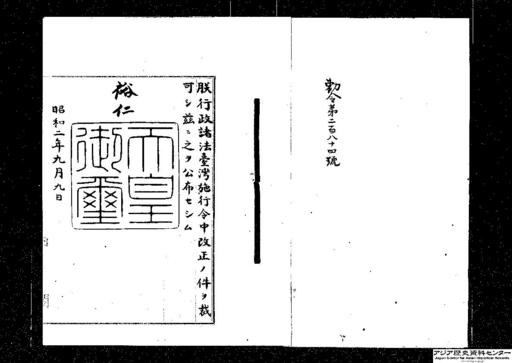 勅令第二百八十四號
朕行政諸法臺灣施行令中改正ノ件ヲ裁
可シ茲ニ之ヲ公布セシム
裕仁
天皇
御璽
昭和二年九月九日
アジア歴史資料センター
Japan Center for Asian Historical Records